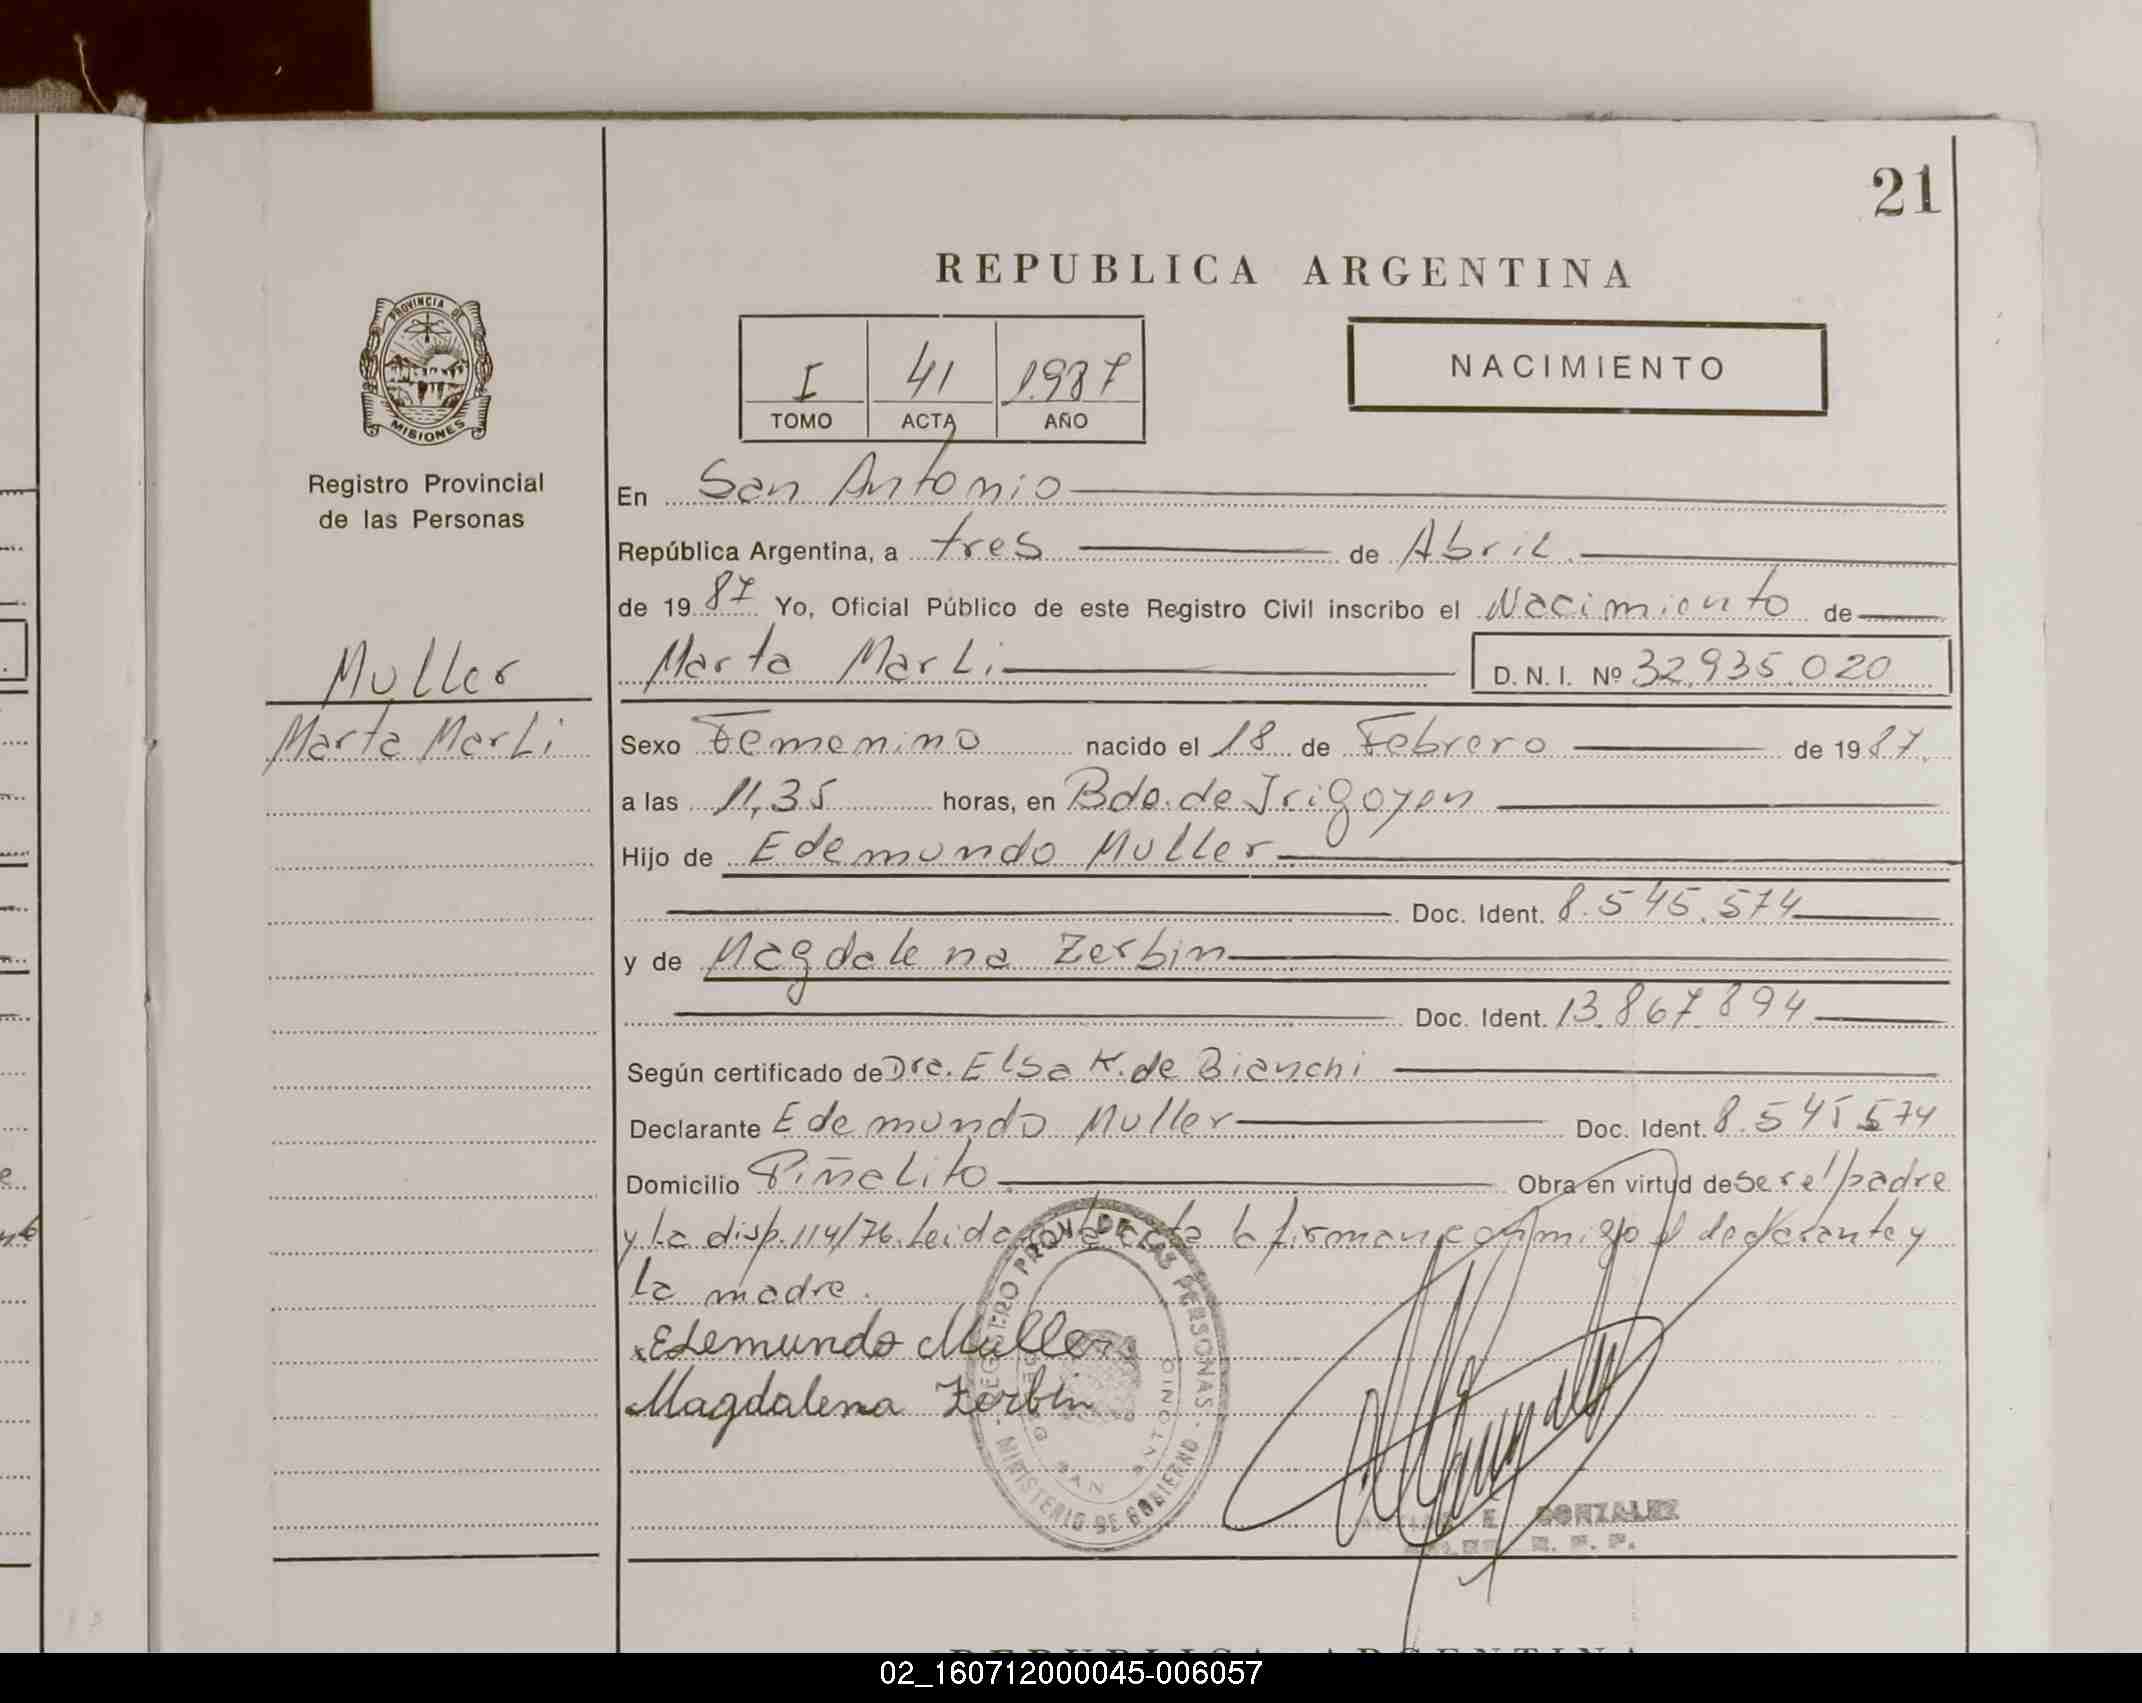 21
REPUBLICA ARGENTINA
PROVINCIA DE
MISIONES
Registro Provincial
de las Personas
I 41 1987
TOMO ACTA AÑO
NACIMIENTO
En San Antonio
República Argentina, a tres de Abril
de 1987 Yo, Oficial Público de este Registro Civil inscribo el Nacimiento de
Muller
Marta Marli
Marta Marli D. N. I. Nº 32.935.020
Sexo Femenino nacido el 18 de Febrero de 1987.
a las 11,35 horas, en Bdo. de Irigoyen
Hijo de Edemundo Muller
Doc. Ident. 8.545.574
y de Magdalena Zerbin
Doc. Ident. 13.867.894
Según certificado de Dra. Elsa K. de Bianchi
Declarante Edemundo Muller Doc. Ident. 8.545.574
Domicilio Piñalito Obra en virtud de ser el padre
y la disp. 114/76. Leida esta acta la firman conmigo el declarante y
la madre.
Edemundo Muller
Magdalena Zerbin
REGISTRO PROV. DE LAS PERSONAS
SAN ANTONIO
MINISTERIO DE GOBIERNO
E. GONZALEZ
R. P. P.
REPUBLICA ARGENTINA
02_160712000045-006057